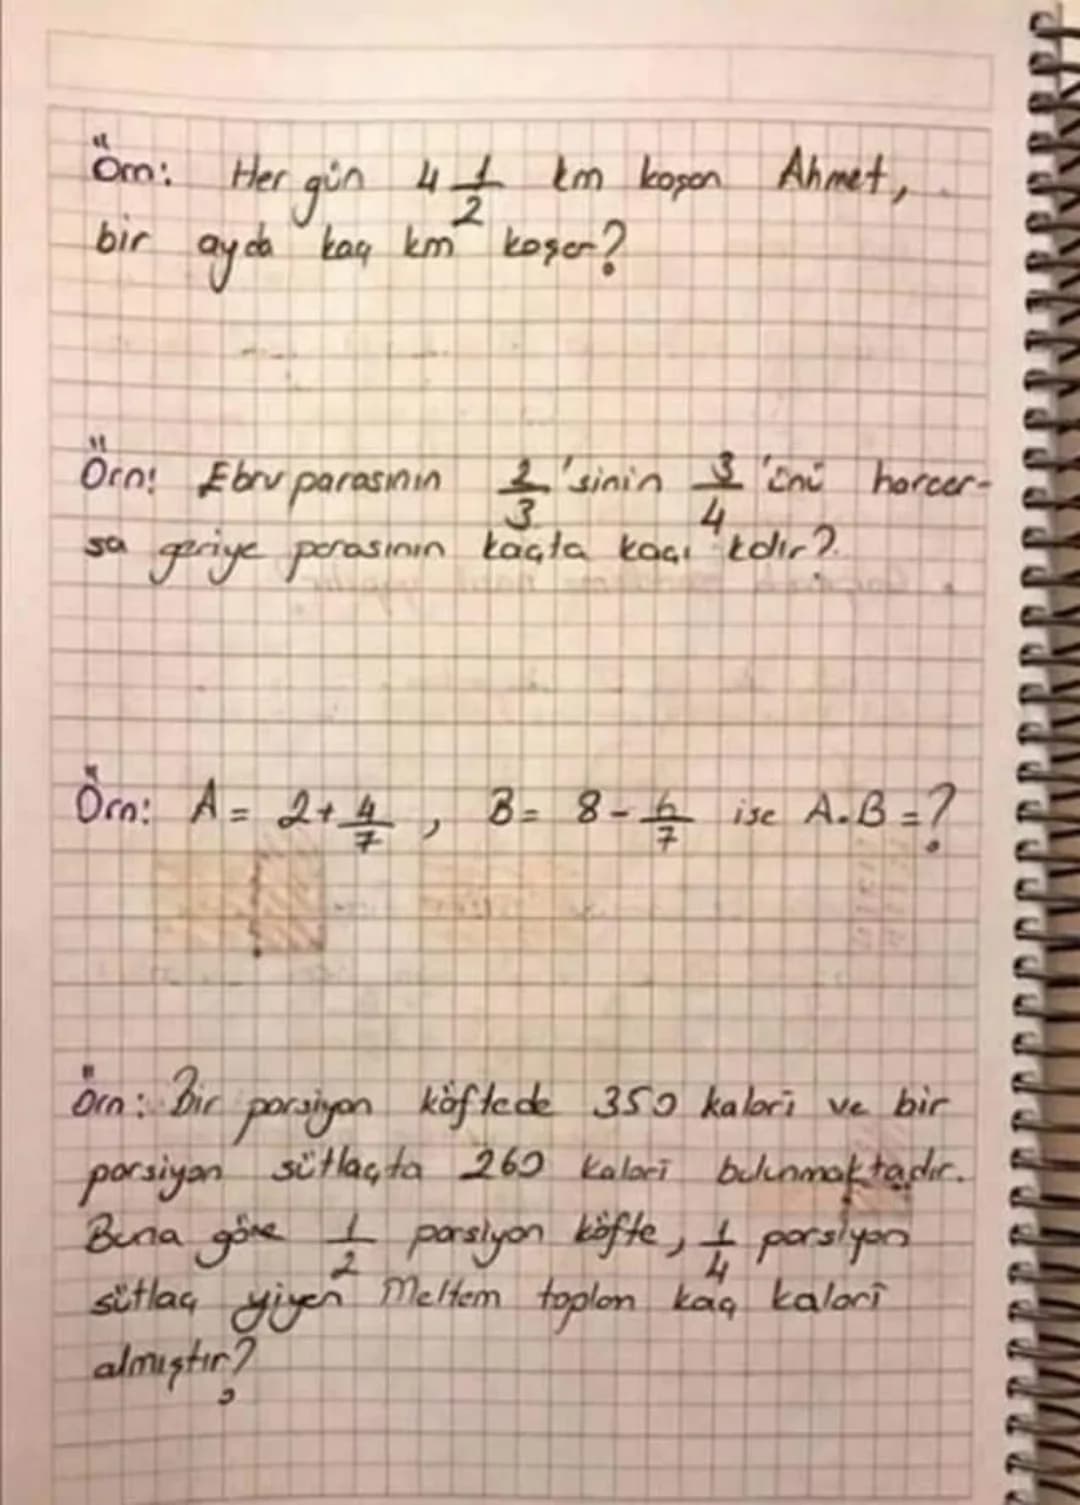 Örn: Her gün 4 1/2 km koşan Ahmet,
bir ayda kaç km koşar?
Örn: Ebru parasının 2/3 'sinin 3/4 'ünü harcar-
sa geriye parasının kaçta kaçı kdır?
Örn: A = 2 + 4/7 , B = 8 - 6/7 ise A.B = ?
Örn: Bir porsiyon köftede 350 kalori ve bir
porsiyon sütlaçta 260 kalori bulunmaktadır.
Buna göre 1/2 porsiyon köfte, 1/4 porsiyon
sütlaç yiyen Meltem toplam kaç kalori
almıştır?